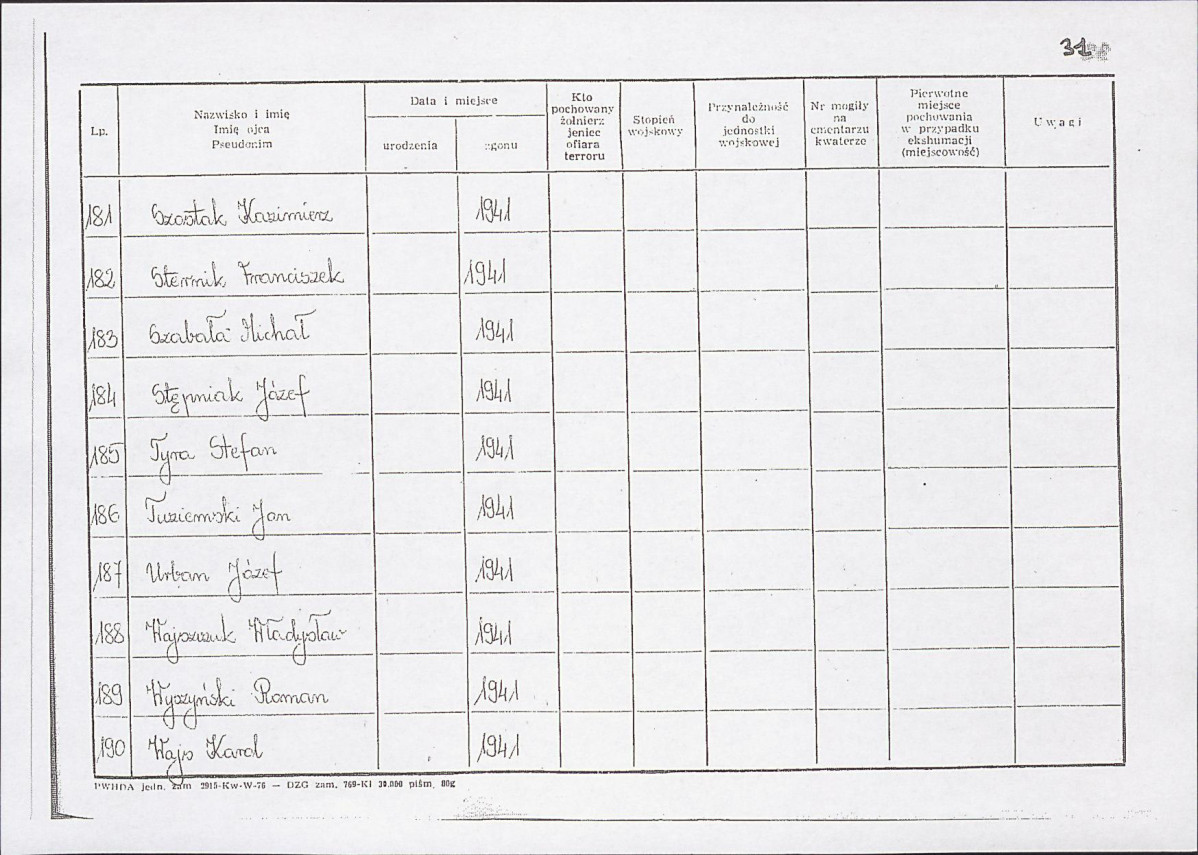 31
Lp.
Nazwisko i imię
Imię ojca
Pseudonim
Data i miejsce
urodzenia
zgonu
Kto
pochowany
żołnierz
jeniec
ofiara
terroru
Stopień
wojskowy
Przynależność
do
jednostki
wojskowej
Nr mogiły
na
cmentarzu
kwaterze
Pierwotne
miejsce
pochowania
w przypadku
ekshumacji
(miejscowość)
Uwagi
181 Szostak Kazimierz 1941
182 Stermik Franciszek 1941
183 Szabała Michał 1941
184 Stępniak Józef 1941
185 Tyra Stefan 1941
186 Tuziemski Jan 1941
187 Urban Józef 1941
188 Wajszczuk Władysław 1941
189 Wyszyński Roman 1941
190 Wajs Karol 1941
PWHDA jedn. zam 2915-Kw-W-76 — DZG zam. 769-KI 30.000 piśm. 80g